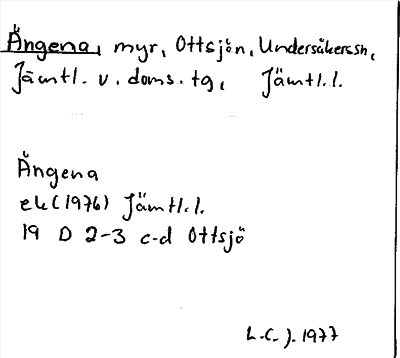 Ängena, myr, Ottsjön, Undersåkers sn,
Jämtl. v. doms. tg, Jämtl. l.
Ängena
ek (1976) Jämtl. l.
19 D 2-3 c-d Ottsjö
L.C.J. 1977